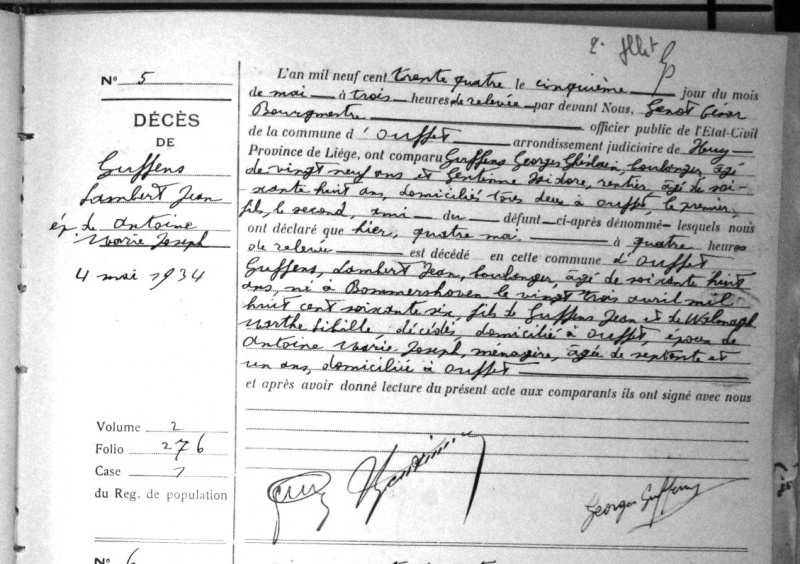 Nº 5
DÉCÈS
DE
Guffens
Lambert Jean
ép. de Antoine
Marie Joseph
4 mai 1934
Volume 2
Folio 276
Case 7
du Reg. de population
L'an mil neuf cent trente quatre le cinquième jour du mois
de mai à trois heures de relevée par devant Nous, Genot César
Bourgmestre officier public de l'Etat-Civil
de la commune d'Ouffet arrondissement judiciaire de Huy
Province de Liége, ont comparu Guffens Georges Ghislain, boulanger, âgé
de vingt neuf ans et Isidore, rentier, âgé de soi-
xante huit ans, domiciliés tous deux à Ouffet, le premier,
fils, le second, ami du défunt ci-après dénommé lesquels nous
ont déclaré que hier, quatre mai à quatre heures
de relevée est décédé en cette commune d'Ouffet
Guffens, Lambert Jean, boulanger, âgé de soixante huit
ans, né à Bommershoven le vingt trois avril mil
huit cent soixante six, fils de Guffens Jean et de
Marthe Sibille, décédés domicilié à Ouffet, époux de
Antoine Marie Joseph, ménagère, âgée de septante et
un ans, domiciliée à Ouffet
et après avoir donné lecture du présent acte aux comparants ils ont signé avec nous
Georges Guffens
Nº 6